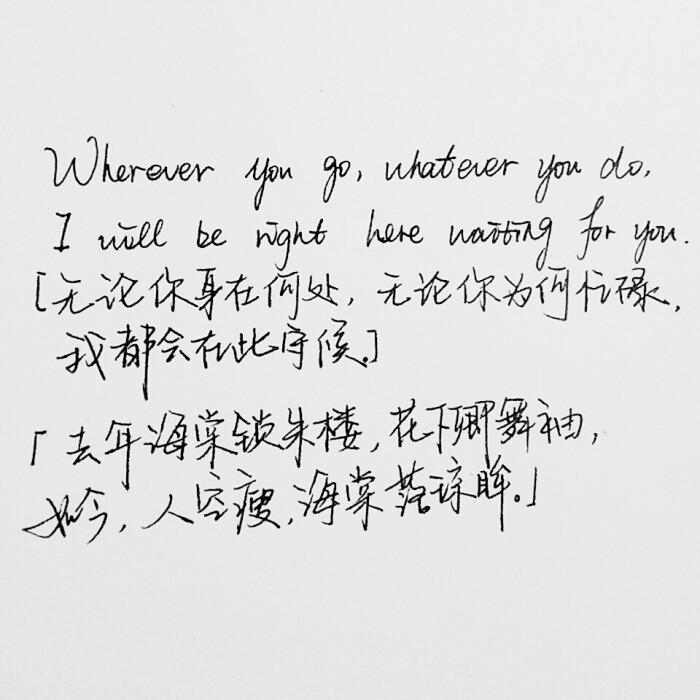 Wherever you go, whatever you do,
I will be right here waiting for you.
[无论你身在何处，无论你为何忙碌，
我都会在此守候。]
「去年海棠锁朱楼，花下卿舞袖，
如今，人空瘦，海棠落琼眸。」